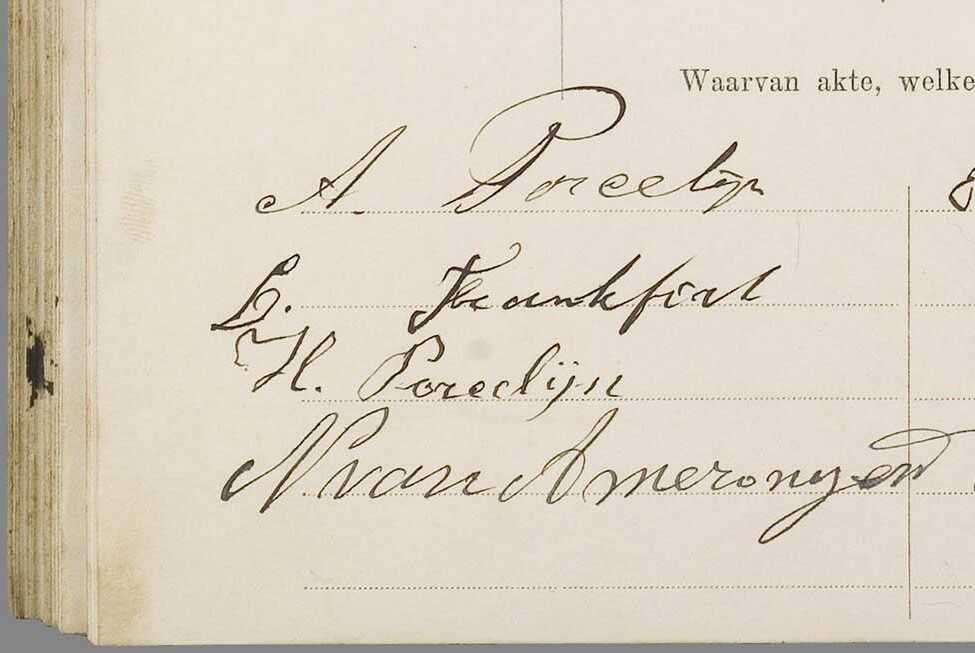 Waarvan akte, welke
A. Porcelijn
L. Frankfort
H. Porcelijn
N van Amerongen